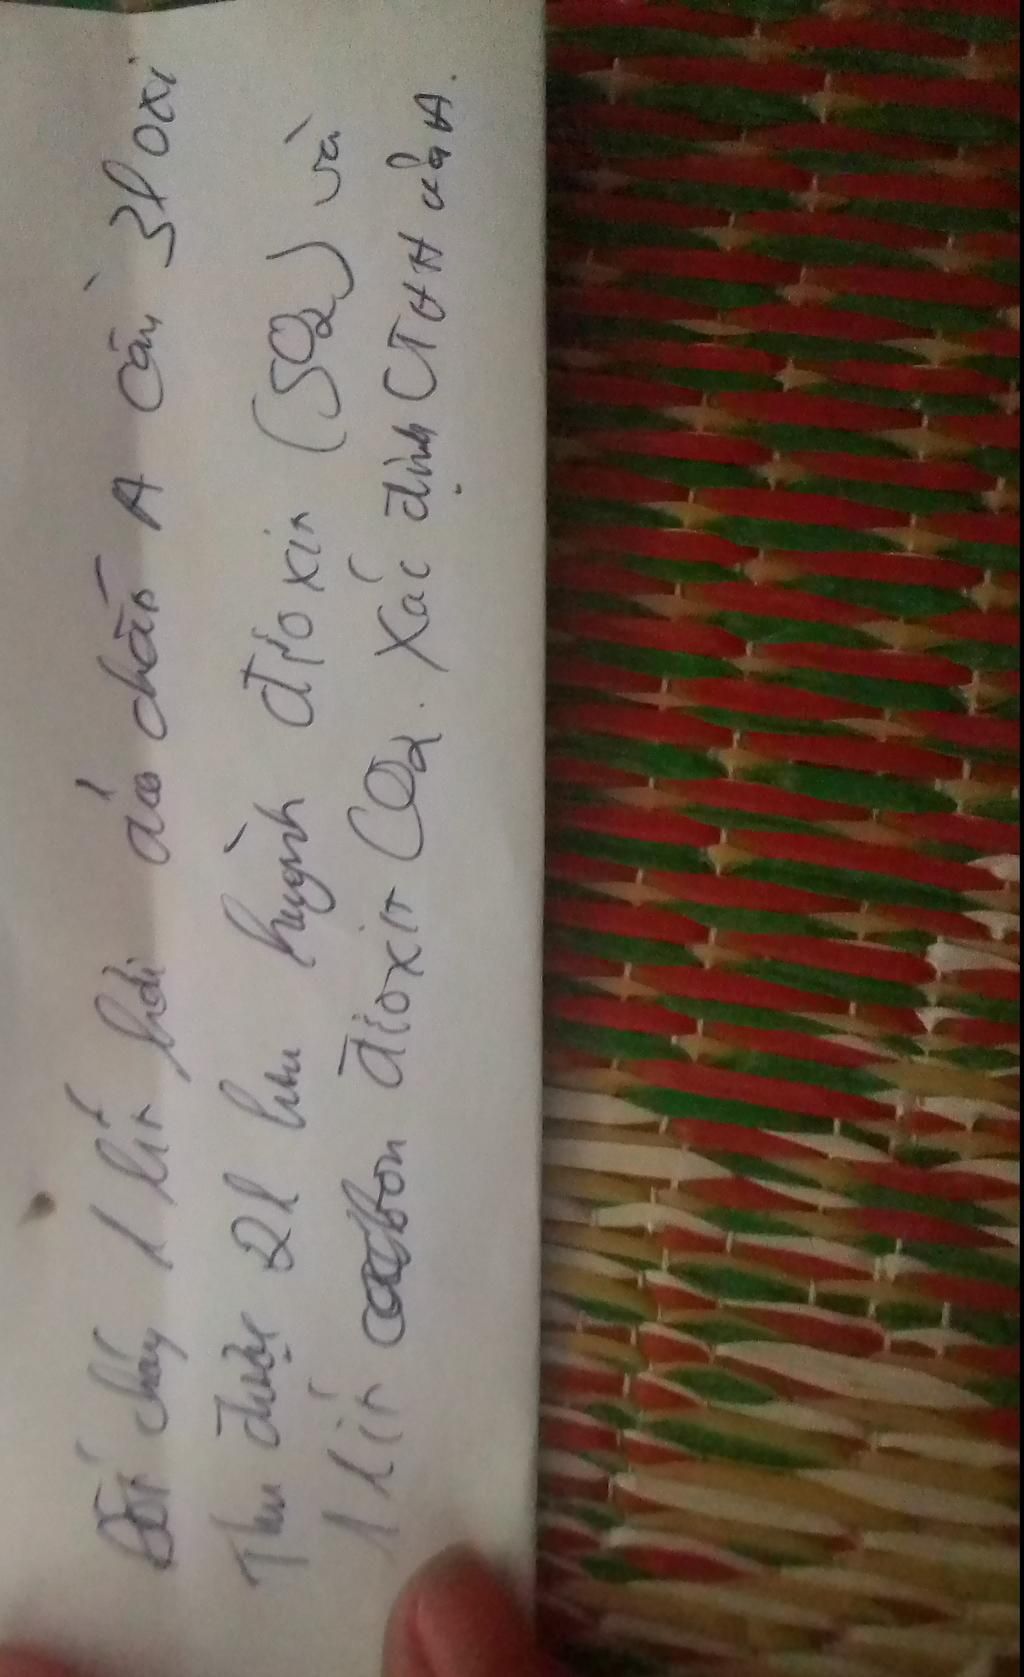 Đốt cháy 1 lít hơi của chất A cần 3l oxi
Thu được 2l lưu huỳnh đioxit (SO2) và
1 lít cacbon đioxit CO2. Xác định CTHH của A.